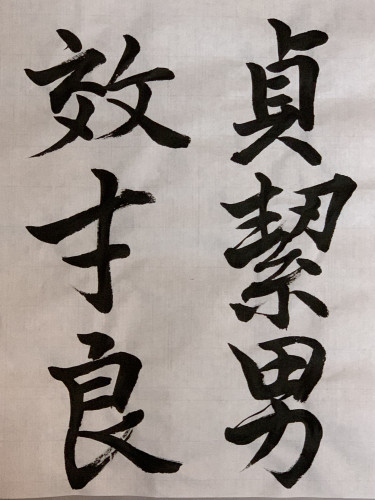 貞絜男
效才良